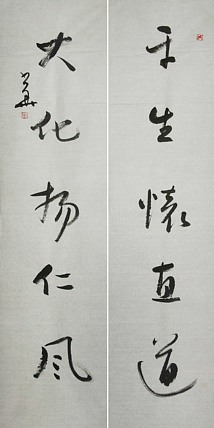 平生懷直道
大化扬仁风